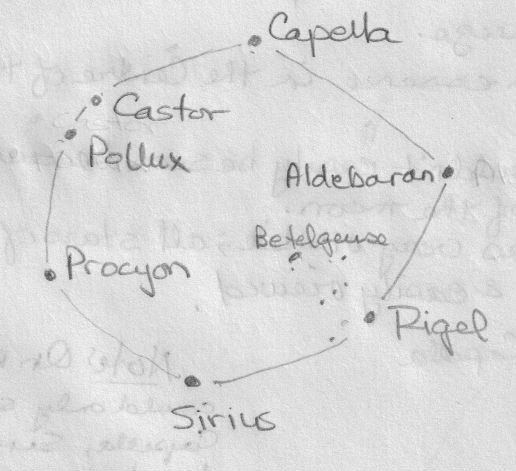 Capella
Castor
Pollux
Aldebaran
Betelgeuse
Procyon
Rigel
Sirius
Note